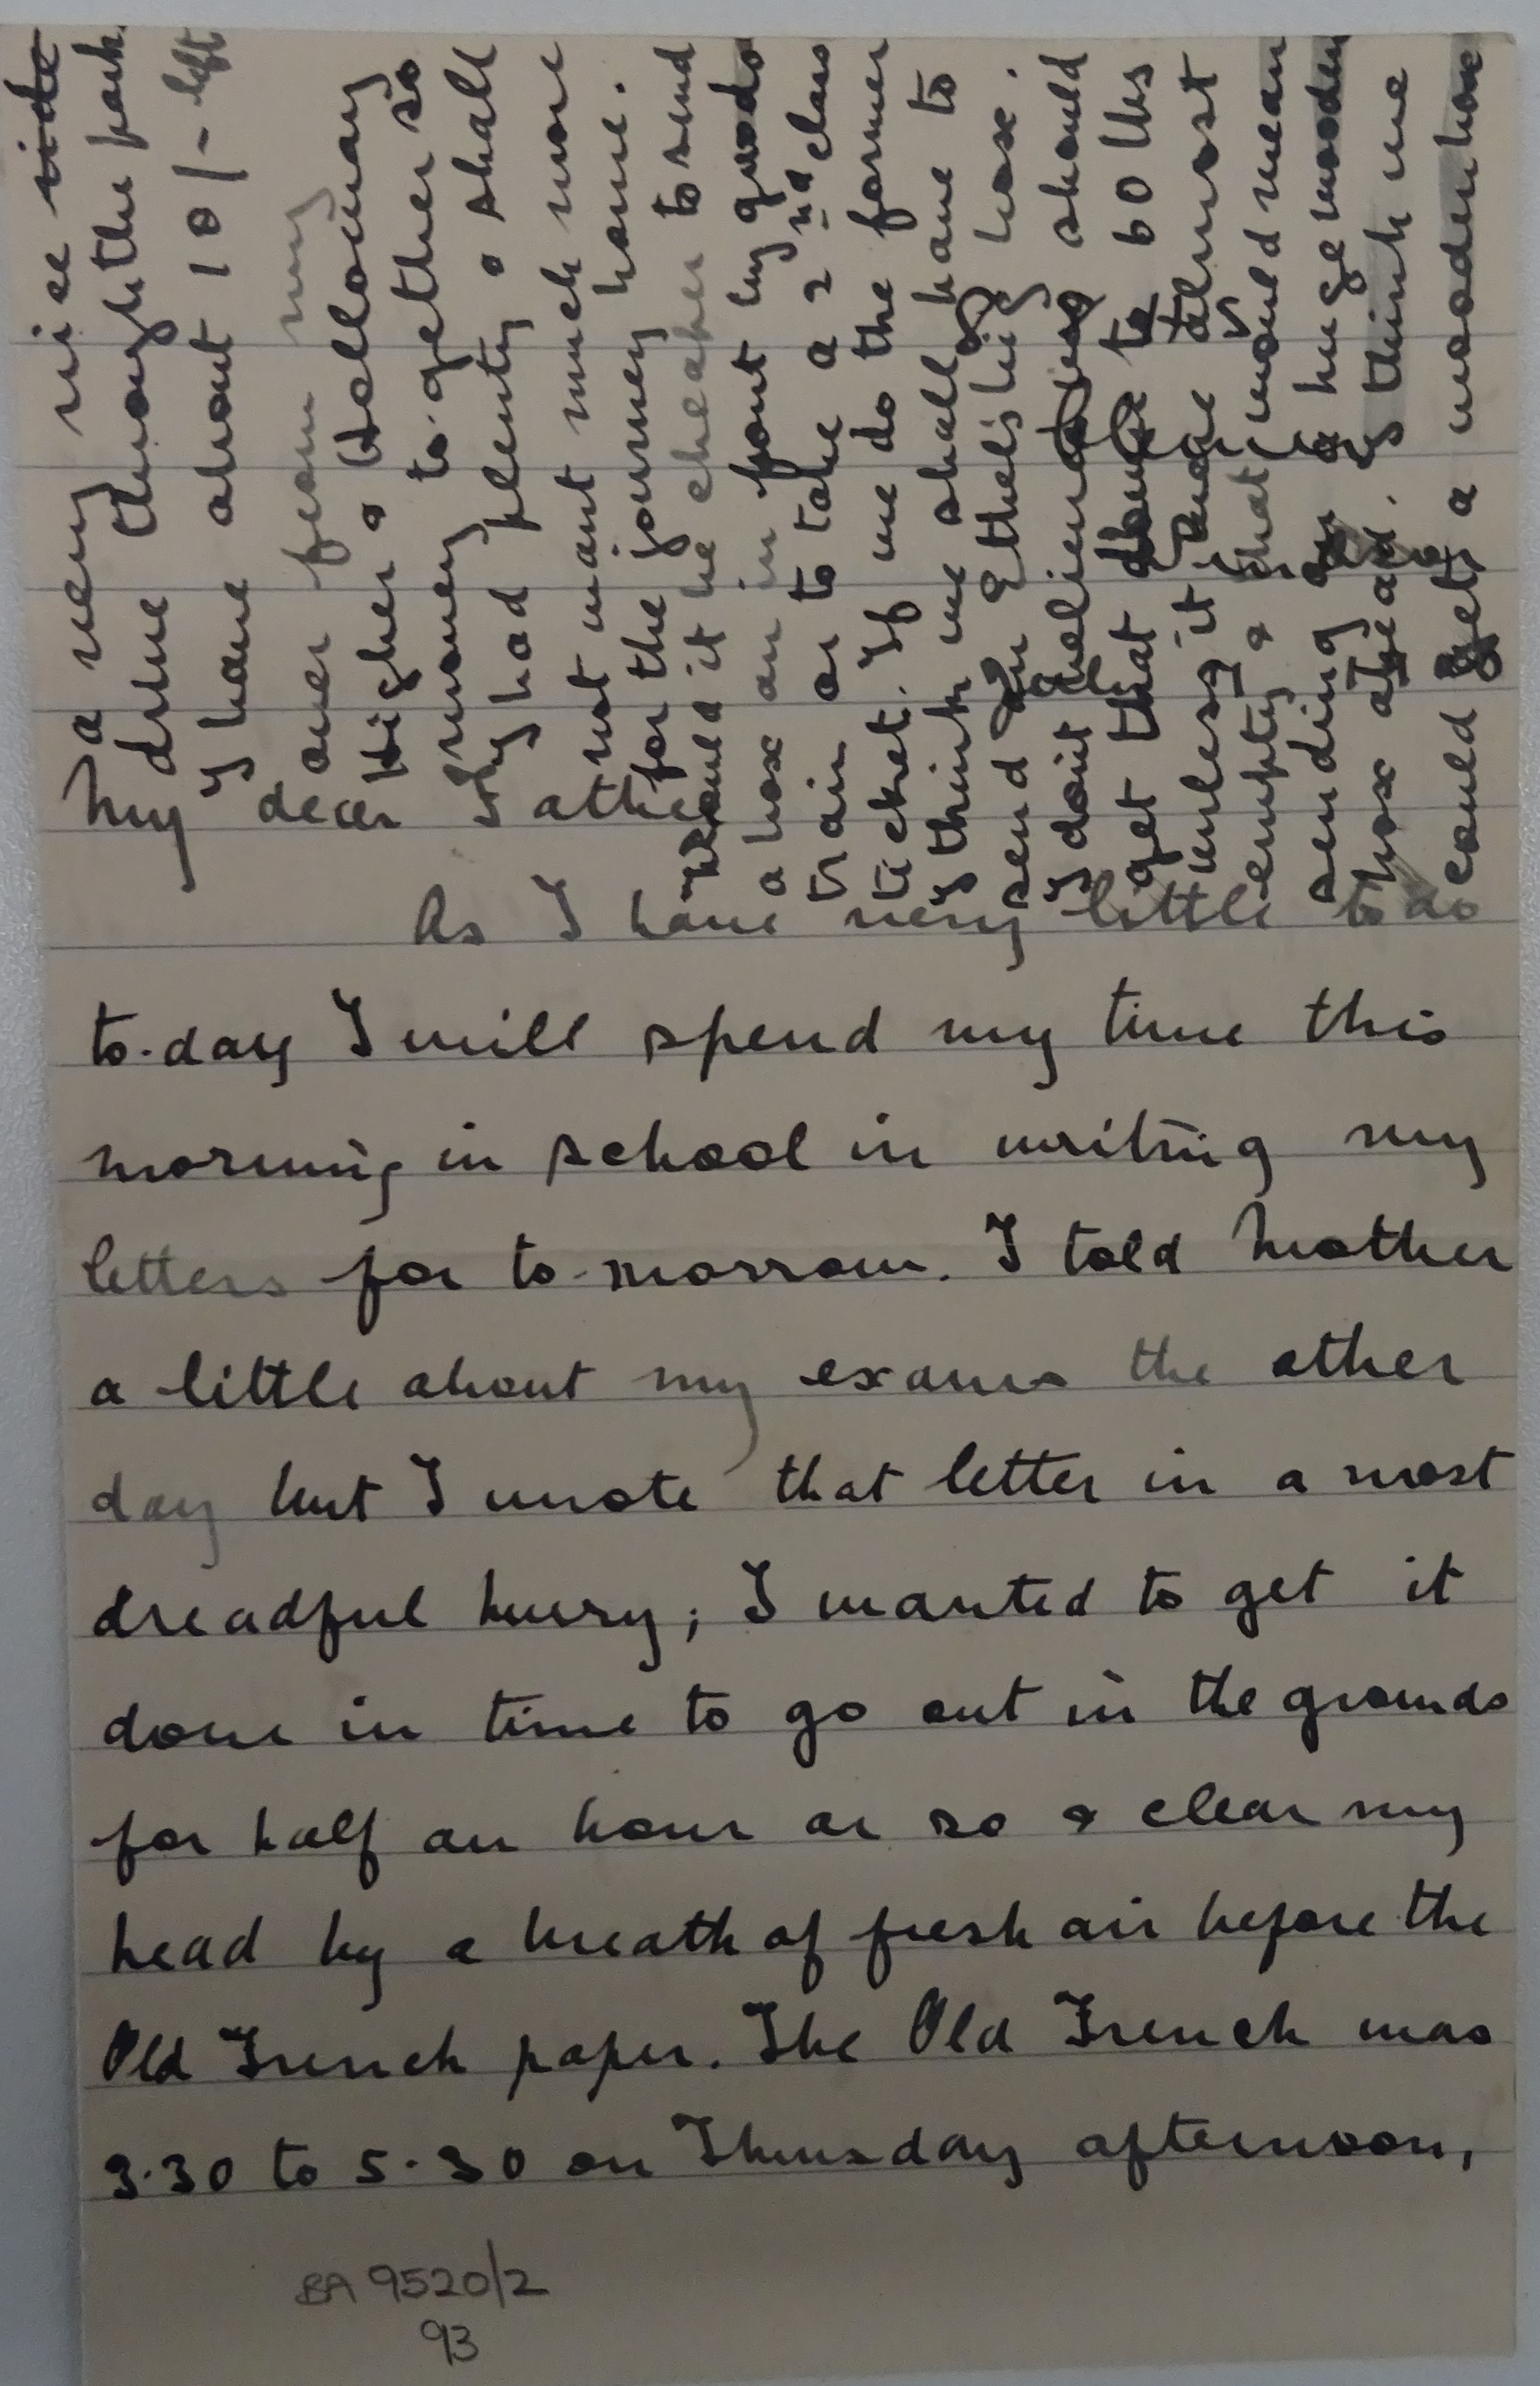 My dear Father
As I have very little to do
to-day I will spend my time this
morning in school in writing my
letters for to-morrow. I told Mother
a little about my exams the other
day but I wrote that letter in a most
dreadful hurry; I wanted to get it
done in time to go out in the grounds
for half an hour or so & clear my
head by a breath of fresh air before the
Old French paper. The Old French was
3.30 to 5.30 on Thursday afternoon,
a very nice ride
drive through the park
I have about 10/- left
over from my
Higher & Holloway
money to-gether so
I had plenty & shall
not want much more
for the journey home.
Would it be cheaper to send
a box on in front by goods
train or to take a 2nd class
ticket. If we do the former
I think we shall have to
send on Ethel's big box.
I don't believe should
get that down to 60 lbs
unless it almost
empty & that would mean
sending a huge wooden
box ahead. I think we
could get a wooden box
BA 9520/2
93